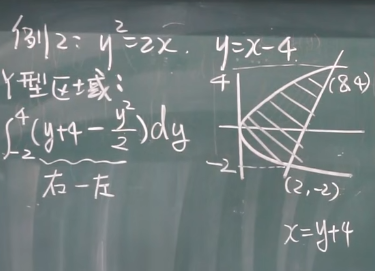 例2: y²=2x. y=x-4
Y型区域:
∫₋₂⁴(y+4-y²/2)dy
右-左
4
(8,4)
-2
(2,-2)
x=y+4